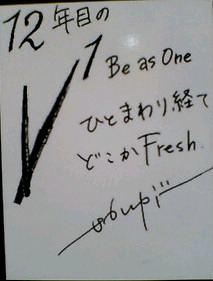 12年目の
V1
Be as One
ひとまわり経て
どこかFresh.